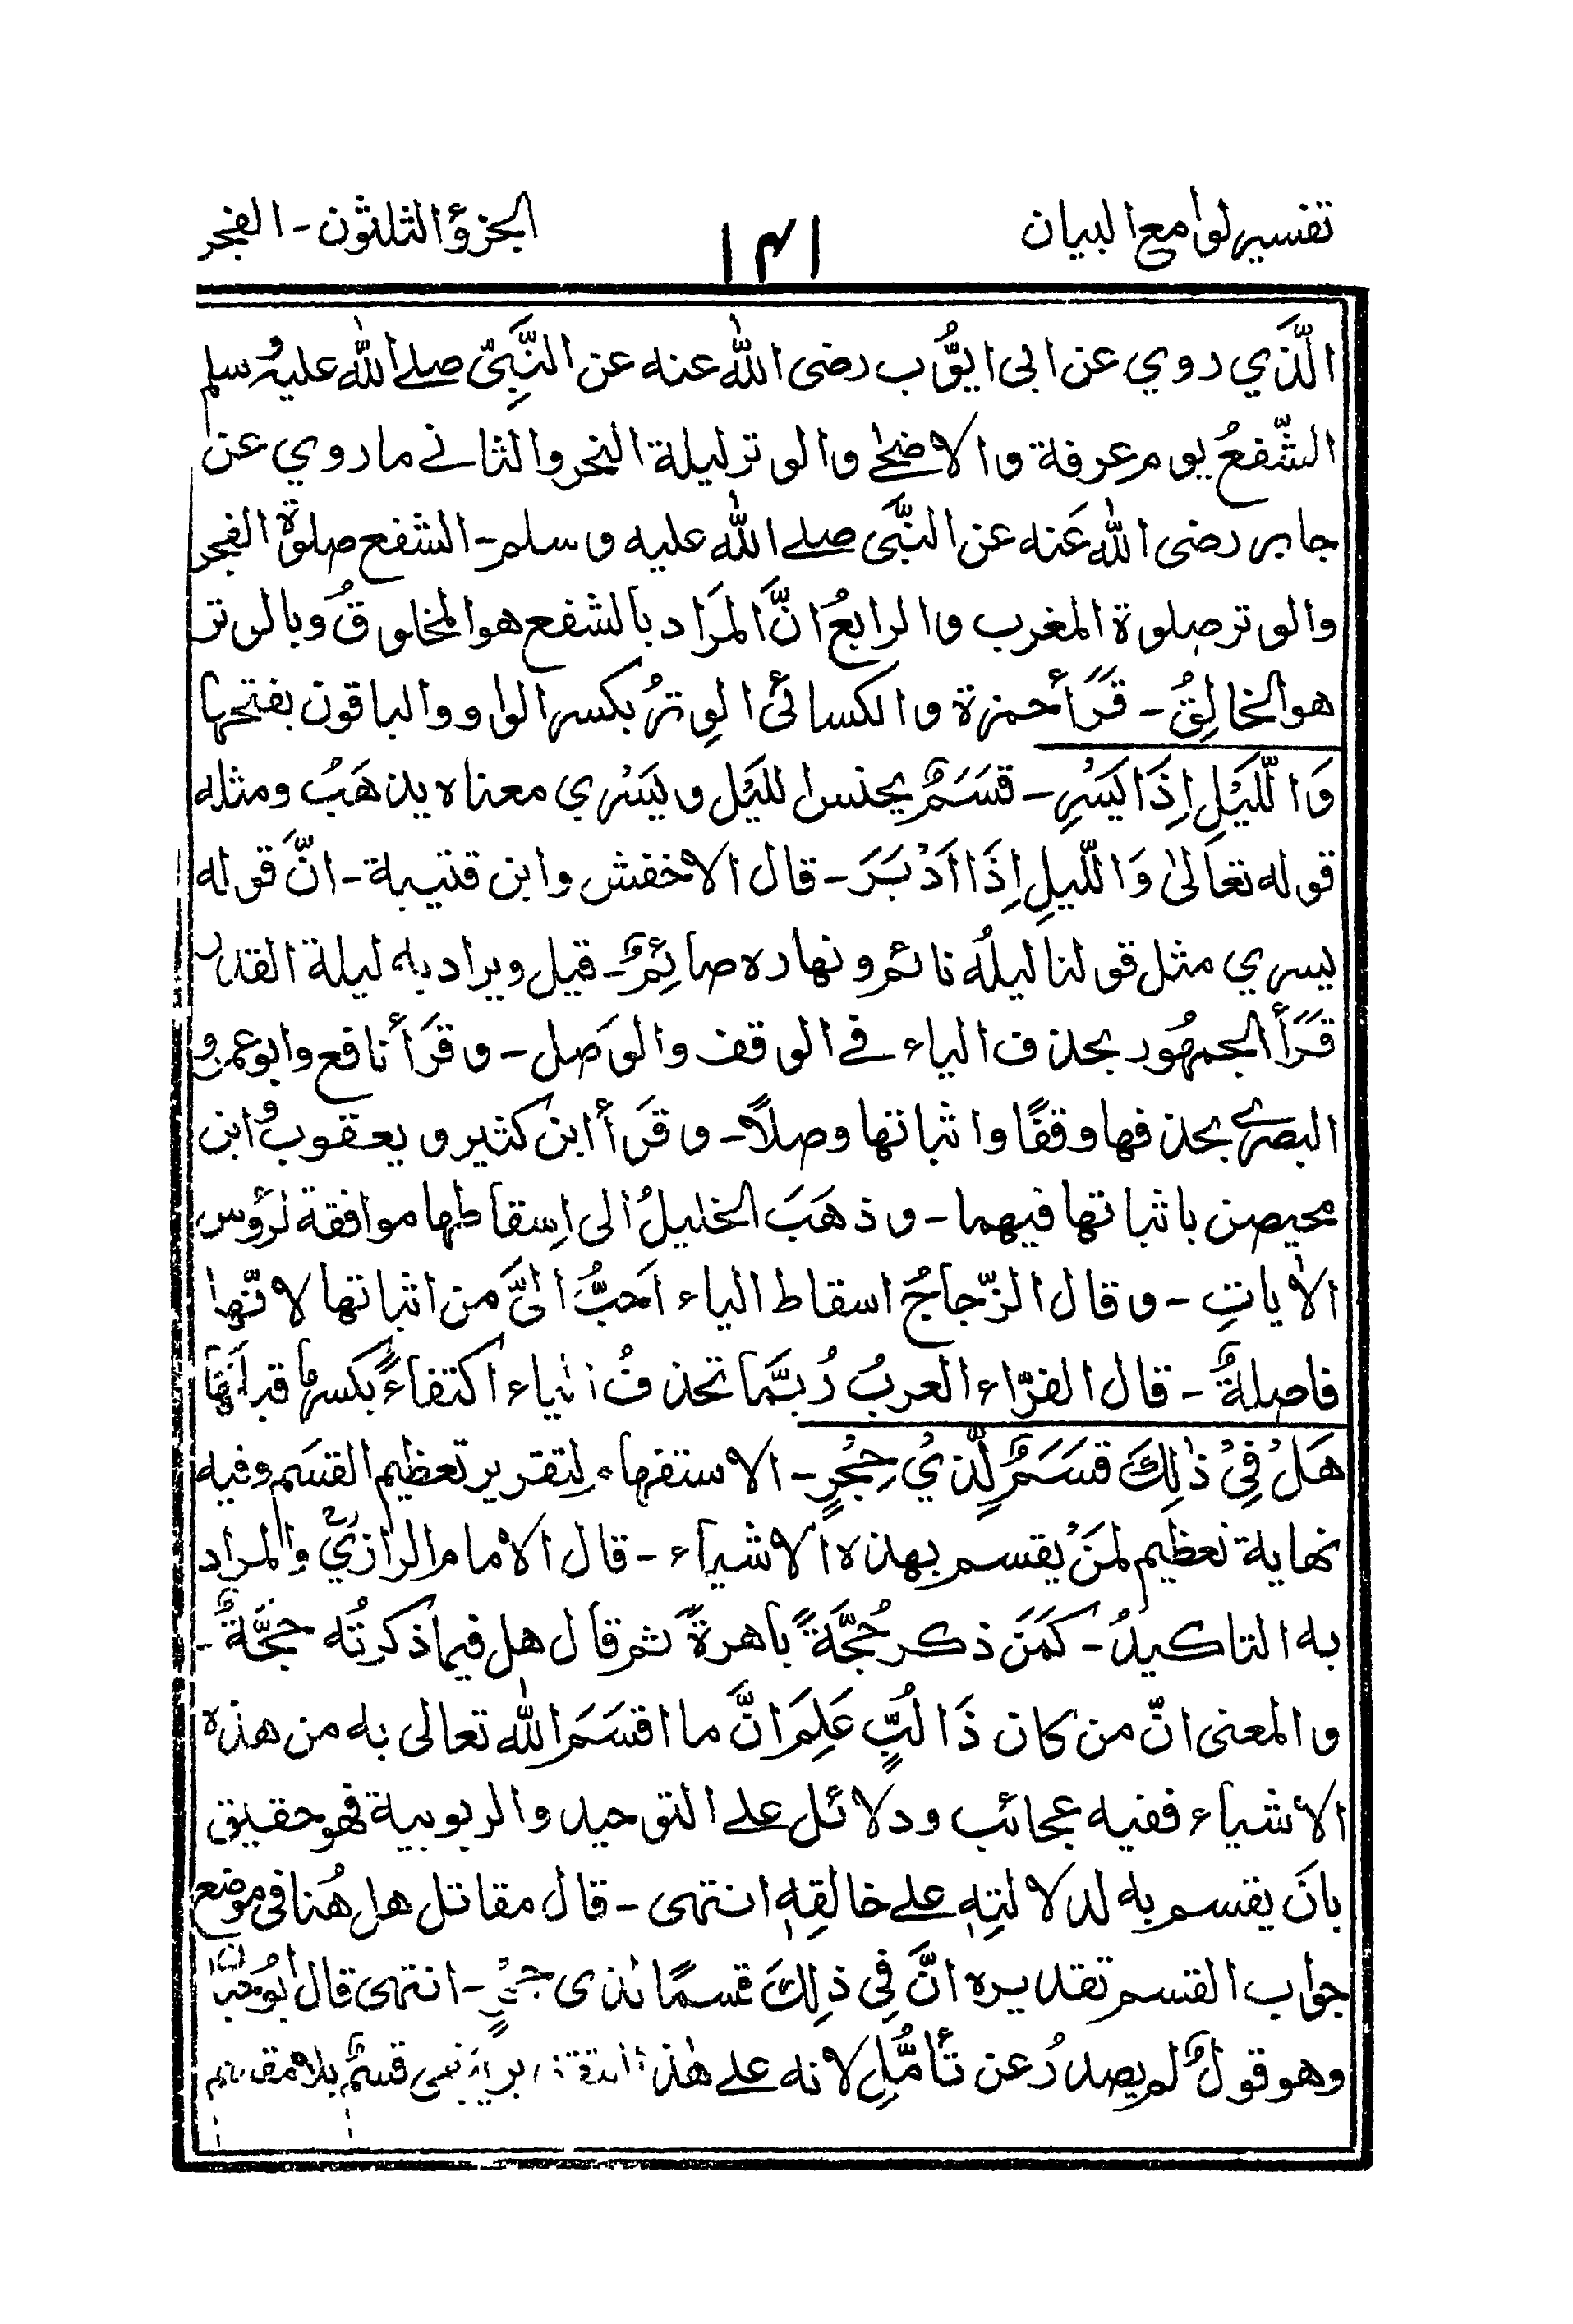 تفسير لوامع البيان ١٣١ الجزؤ الثلثون - الفجر
الَّذي روي عن ابى ايُّوب رضى الله عنه عن النَّبِيّ صلے الله عليه وسلم
الشّفعُ يوم عرفة والاضحٰے والوتر ليلة النحر والثانے ما روي عن
جابر رضى الله عَنه عن النبَّى صلے الله عليه وسلم - الشفع صلوة الفجر
والوتر صلوة المغرب والرابعُ انَّ المرَاد بالشفع هو المخلوقُ وبالوتر
هو الخالِقُ - قَرَأ حمزة والكسائى الوِترُ بكسر الواو والباقون بفتحها
وَاللَّيْلِ اِذَا يَسْرِ - قَسَمٌ بجنس الليْل ويَسْري معناه يذهَبُ ومثله
قوله تعالىٰ وَاللّيلِ اِذَا اَدْبَرَ - قال الاخفش وابن قتيبة - انَّ قوله
يسري مثل قولنا ليلُه نائم ونهاره صائِمٌ - قيل ويراد به ليلة القدر
قَرَأ الجمهُور بحذف الياء فے الوقف والوَصل - وقرَأ نافع وابو عمرو
البصرے بحذفها وقفًا واثباتها وصلاً - وقَرَأ ابن كثير ويعقوبُ وابن
محيصن باثباتها فيهما - وذهَبَ الخليلُ الى اِسقاطها موافقة لرؤس
الاٰياتِ - وقال الزّجاجُ اسقاط الياء اَحبُّ الىَّ من اثباتها لانّها
فاصلةٌ - قال الفرّاء العربُ رُبمَّا تحذفُ الياء اكتفاءً بكسرة ما قبلها
هَلْ فِيْ ذٰلِكَ قَسَمٌ لِّذيْ حِجْرٍ - الاستفهام لِتقرير تعظيم القسَم وفيه
نهاية تعظيم لمنْ يقسم بهذه الاشياء - قال الامام الرازيُّ والمراد
به التاكيدُ - كمَنَ ذكر حُجَّةً باهرةً ثم قال هل فيما ذكرتُه حجَّةٌ -
والمعنى انّ من كان ذَا لُبٍّ عَلِمَ انَّ ما اقسَمَ الله تعالى به من هذه
الأشياء ففيه عجائب ودلائل علے التوحيد والربوبية فهو حقيق
بانَ يقسم به لدلالتِهٖ علے خالقِهٖ انتهى - قال مقاتل هل هُنا فى موضع
جواب القسم تقديره انَّ فِي ذٰلِكَ قسمًا لذى حجْرٍ - انتهى قال ابُو حيان
وهو قولٌ لم يصدرُ عن تأمُّلِ لانه علے هٰذا التقدير يبقى قسمٌ بلا مقسم